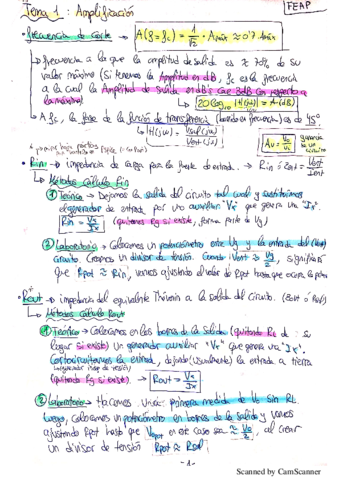 Tema 1: Amplificación
FEAP
• frecuencia de corte → A(f=fc) = 1/√2 · Amáx ≈ 0'7 Amáx
→ frecuencia a la que la amplitud de salida es ≈ 70% de su
valor máximo (Si tenemos la Amplitud en dB, fc es la frecuencia
a la cual la Amplitud de salida en dB's cae 3dB con respecto a
la máxima) → 20 log10 |H(jω)| = A(dB)
→ A fc, la fase de la función de transferencia es de 45°
Av = Vo/Vi ganancia
• Rin → impedancia de carga para la fuente de entrada. → Rin ≡ Zent = Vent/Ient
↳ Métodos Cálculo Rin
① Teórico → Dejamos la salida del circuito tal cual y sustituimos
el generador de entrada por uno auxiliar "Vx" que genera una "Ix".
Rin = Vx/Ix (quitamos Rg si existe, forma parte de Vg)
② Laboratorio → Colocamos un potenciómetro entre Vg y la entrada del
circuito. Creamos un divisor de tensión. Cuando Vent ≈ Vg/2, significa
que Rpot ≈ Rin, vamos ajustando el valor de Rpot hasta que ocurra lo
• Rout → impedancia del equivalente Thévenin a la salida del circuito. (Zout ó Ro)
↳ Métodos Cálculo Rout
① Teórico → Colocamos en los bornes de la salida (quitando RL de su
lugar si existe) un generador auxiliar "Vx" que genera una "Ix".
Cortocircuitamos la entrada, dejando (usualmente) la entrada a tierra
(quitando Rg si existe). → Rout = Vx/Ix
② Laboratorio → Hacemos una primera medida de Vo sin RL.
Luego, colocamos un potenciómetro en bornes de la salida y vamos
ajustando Rpot hasta que Vpot en este caso sea ≈ Vo/2, al crear
un divisor de tensión Rpot ≈ Rsal
- 1 -
Scanned by CamScanner